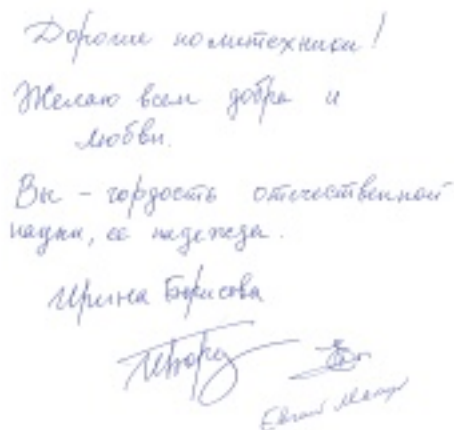 Дорогие политехники!
Желаю всем добра и
любви.
Вы - гордость отечественной
науки, ее надежда.
Ирина Борисова